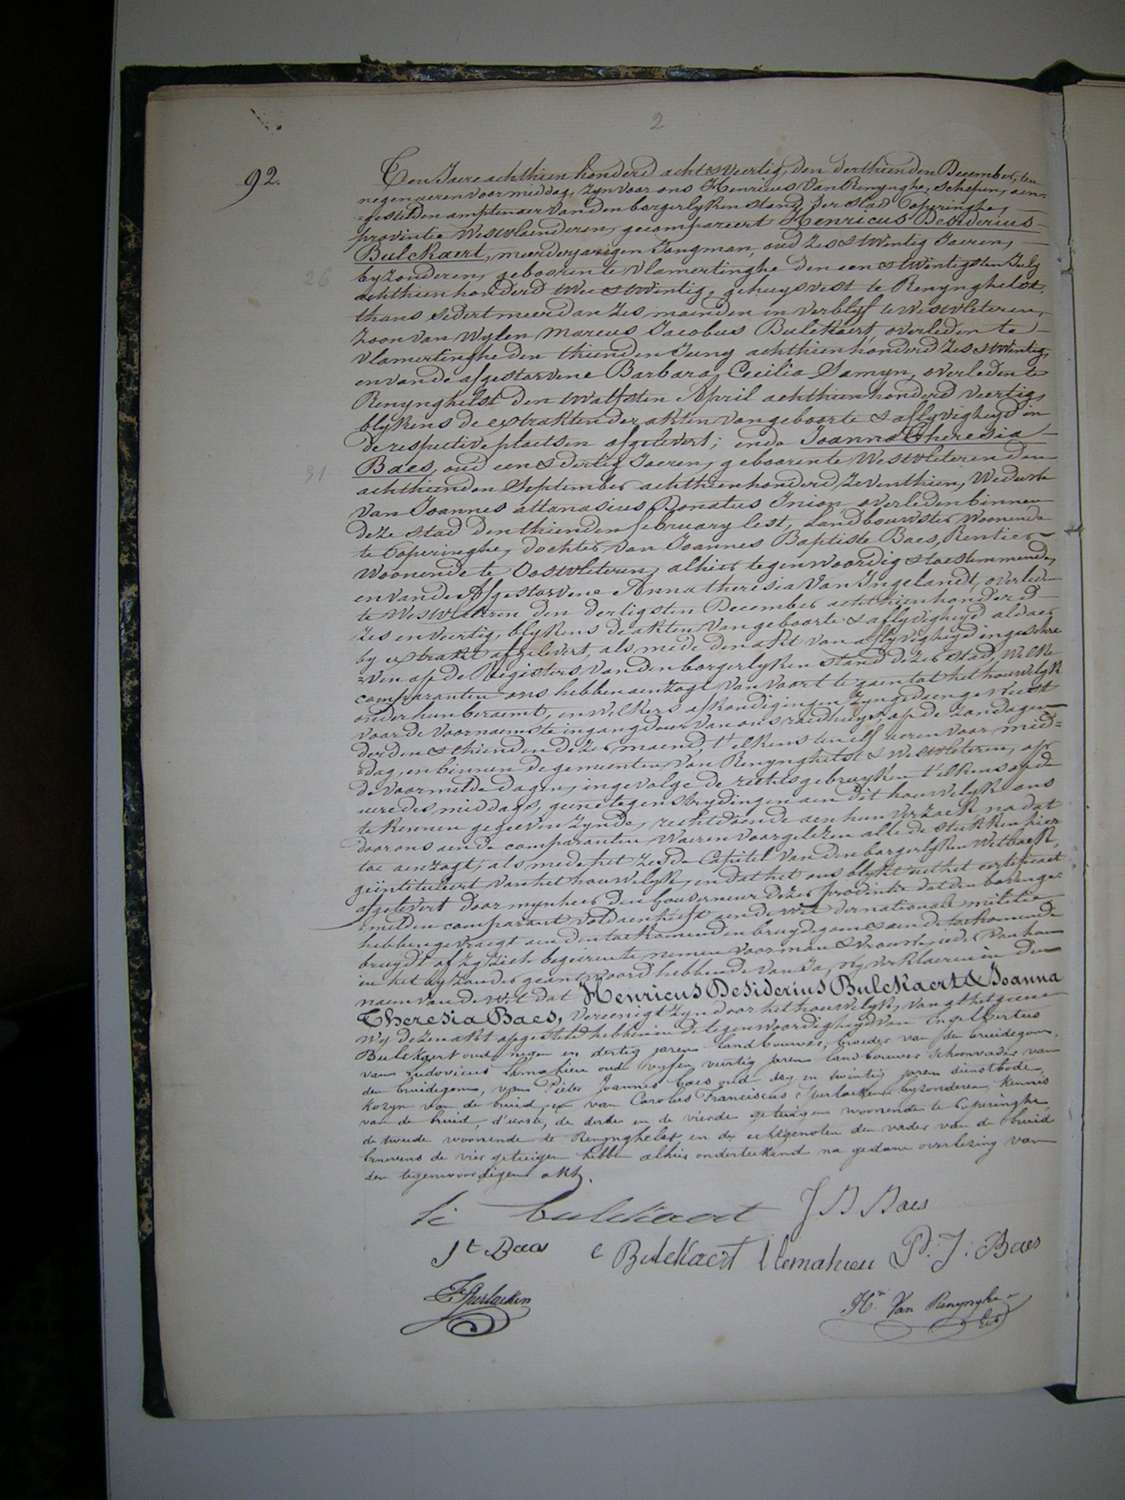 2
92.
Ten Jaere achthien honderd acht & veertig, den derthienden December, ten
negen ueren voormiddag, zyn voor ons Henricus Van Renynghe, Schepen, aen-
gestelden amptenaer van den borgerlyken stand der stad Poperinghe,
provintie Westvlaenderen, gecompareert Henricus Desiderius
Bulckaert, meerderjarigen Jongman, oud zes & twintig Jaeren,
26
byzonderen, geboren te Vlamertinghe den een & twintigsten July
achthien honderd twee & twintig, gehuysvest te Renynghelst,
thans sedert meer dan zes maenden in verblyf te Westvleteren,
Zoon van Wylen Marcus Jacobus Bulckaert, overleden te
Vlamertinghe den thienden Juny achthien honderd zes & twintig,
en van de afgestorvene Barbara Cecilia Samyn, overleden te
Renynghelst den twalfsten April achthien honderd veertig,
blykens de extrakten der akten van geboorte & aflyvigheyd in
de respective plaetsen afgelevert; ende Joanna Theresia
31
Baes, oud een & dertig Jaeren, geboren te Westvleteren den
achthienden September achthien honderd zeventhien, Weduwe
van Joannes Attanasius Donatus Inion, overleden binnen
deze stad den thienden february lest, Landbouwster, woonende
te Poperinghe, dochter van Joannes Baptiste Baes, Rentier
woonende te Oostvleteren, alhier tegenwoordig & toestemmende,
en van de Afgestorvene Anna theresia Van Ingelandt, overleden
te Westvleteren den dertigsten December achthien honderd
zes en veertig, blykens de akten van geboorte & aflyvigheyd aldaer
by extrakt afgelevert, als mede den akt van aflyvigheyd ingeschre-
ven op de Registers van den borgerlyken stand dezer stad, Welke
comparanten ons hebben aenzogt van voort te gaen tot het houwelyk
onder hun beraemt, en welkers afkondigingen zyn gedaen geweest
voor de voornaemste ingangdeur van ons raedhuys op de zondagen
derden & thienden dezer maend, t'elkens ten elf ueren voormid-
dag, en binnen de gemeenten van Renynghelst & Westvleteren, op
de voormelde dagen, ingevolge de zelfs gebruyken t'elkens op de
ure des middags, geene tegenstrydingen aen dit houwelyk ons
te kennen gegeven zynde, rechtdoende aen hun verzoek na dat
door ons aen de comparanten waeren voorgelezen alle de stukken hier
toe aenzogt, als mede het zesde Capitel van den borgerlyken Wetboek,
geintituleert van het houwelyk, en dat het ons blykt uit het certificaet
afgelevert door mynheer den Gouverneur dezer provintie dat den boven ge-
melden comparant voldaen heeft aen de wet der nationale militie
hebben gevraegt aen den toekomenden bruydegom & aen de toekomende
bruydt of zy zich begeerente nemen voor man & vrouw, ieder van hun
in het byzonder geantwoord hebbende van Ja, wy verklaeren in den
naem van de wet dat Henricus Desiderius Bulckaert & Joanna
Theresia Baes, vereenigt zyn door het houwelyk, van al het geene
Wy dezen akt opgesteld hebben in de tegenwoordigheyd van Engelbertus
Bulckaert oud negen en dertig jaren landbouwer, broeder van den bruidegom,
van Ludovicus Lemahieu oud vyf en veertig jaren landbouwer schoonvader van
den bruidegom, van Pieter Joannes Baes oud dry en twintig jaren dienstbode,
kozyn van de bruid, en van Carolus Franciscus Sterlacken byzonderen, kennis
van de bruid, d'eerste, de derde en de vierde getuigen woonende te Poperinghe,
de tweede woonende te Renynghelst, en de echtgenoten den vader van de bruid
benevens de vier getuigen hebben alhier onderteekend na gedane overlezing van
den tegenwoordigen akt.
Bulckaert J B Baes
J t Baes e Bulckaert l lemahieu P. J. Baes
Hri Van Renynghe